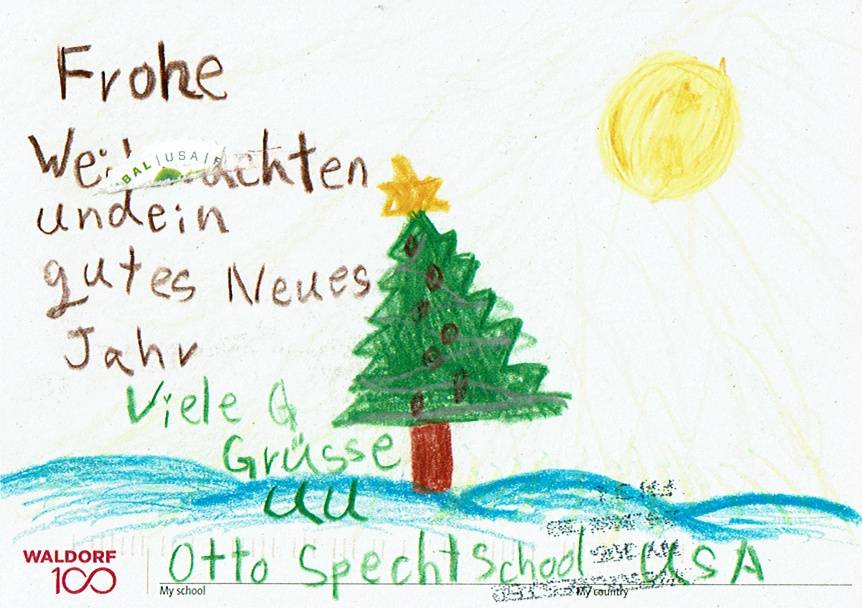 Frohe
Weihnachten
BAL|USA|F
undein
gutes Neues
Jahr
Viele G
Grüsse
uu
WALDORF
100
Otto Specht School USA
My school
My country